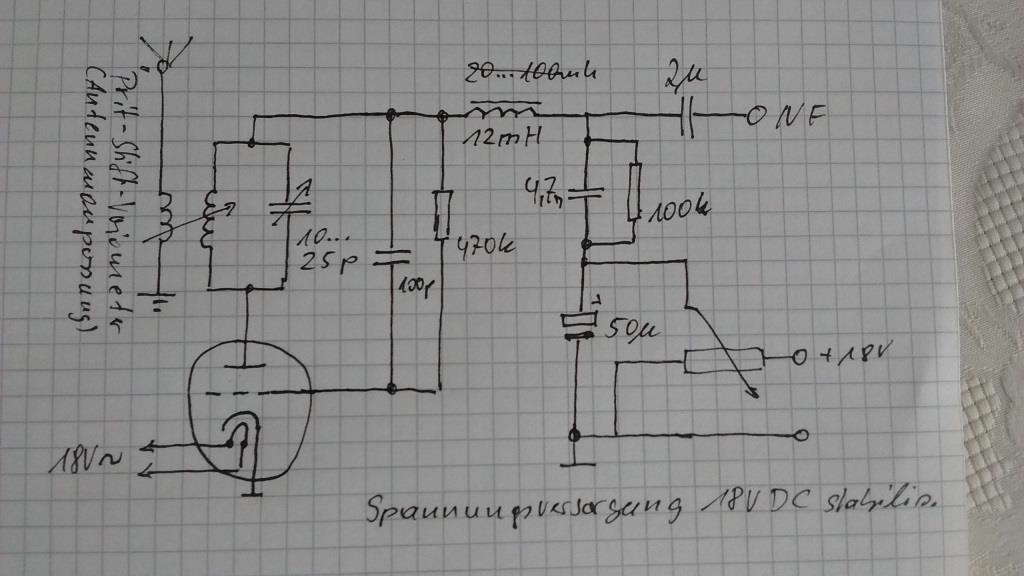 Prit-Stift-Variometer
(Antennenanpassung)
10...
25p
100p
470k
20...100mH
12mH
2µ
NF
4,7n
100k
50µ
+18V
18V~
Spannungsversorgung 18V DC stabilis.